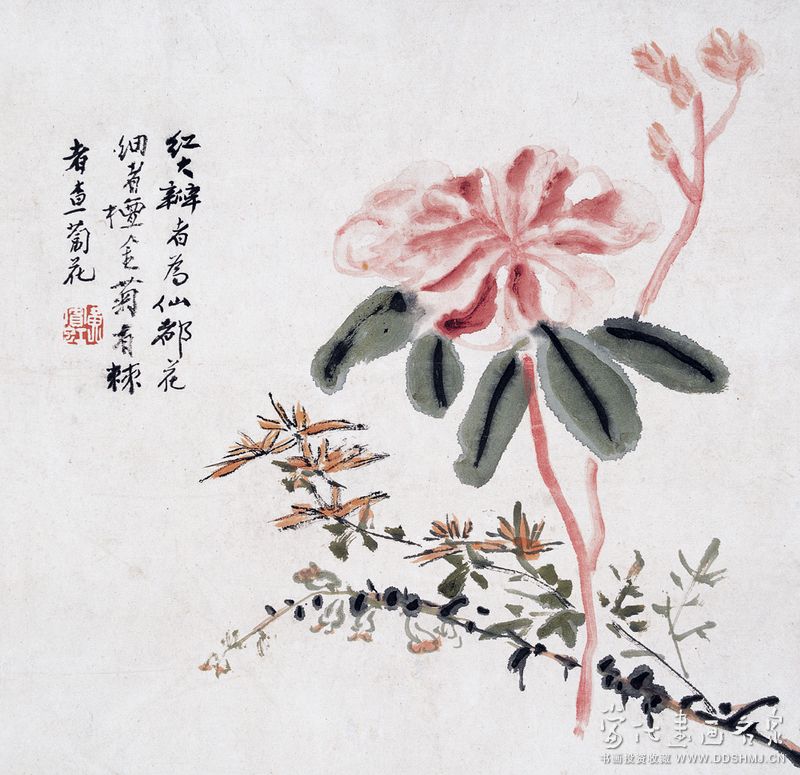 红大瓣者为仙都花
细者檀金菊有棘
者鱼蔔花
当代书画名家
书画投资收藏 WWW.DDSHMJ.CN